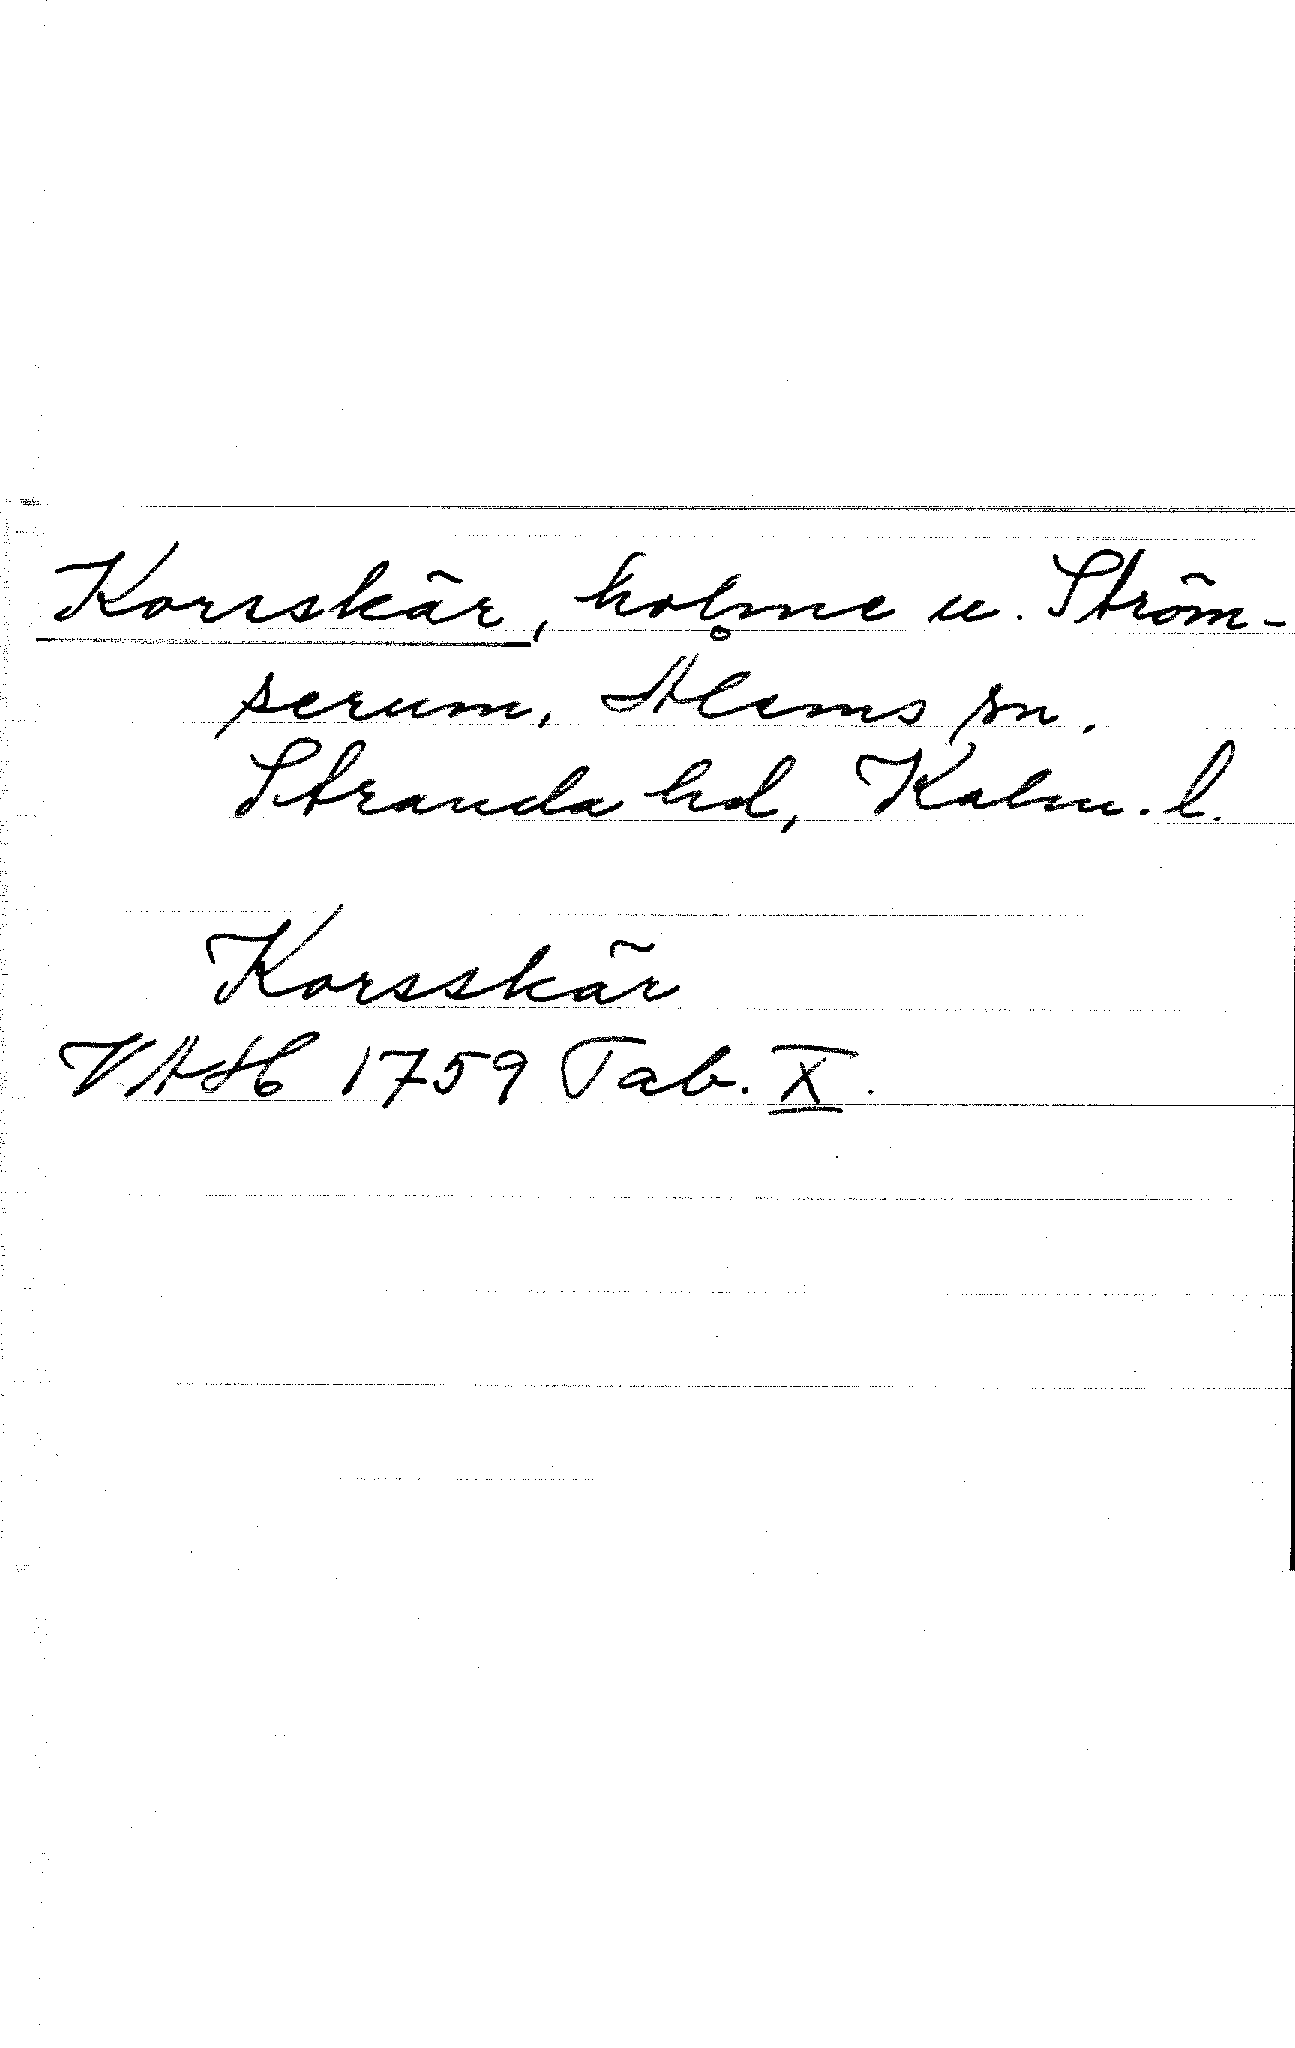 Korsskär, holme u. Ström-
serum, Ålems sn.
Stranda hd, Kalm. l.
Korsskär
VAH 1759 Tab. X.